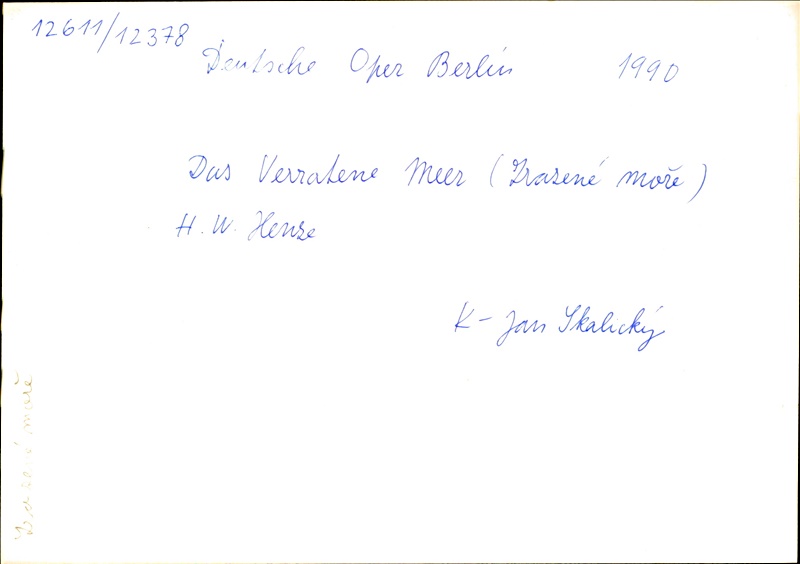 12611/12378
Deutsche Oper Berlin 1990
Das Verratene Meer (Zrazené moře)
H. W. Henze
K - Jan Skalický
Zrazené moře